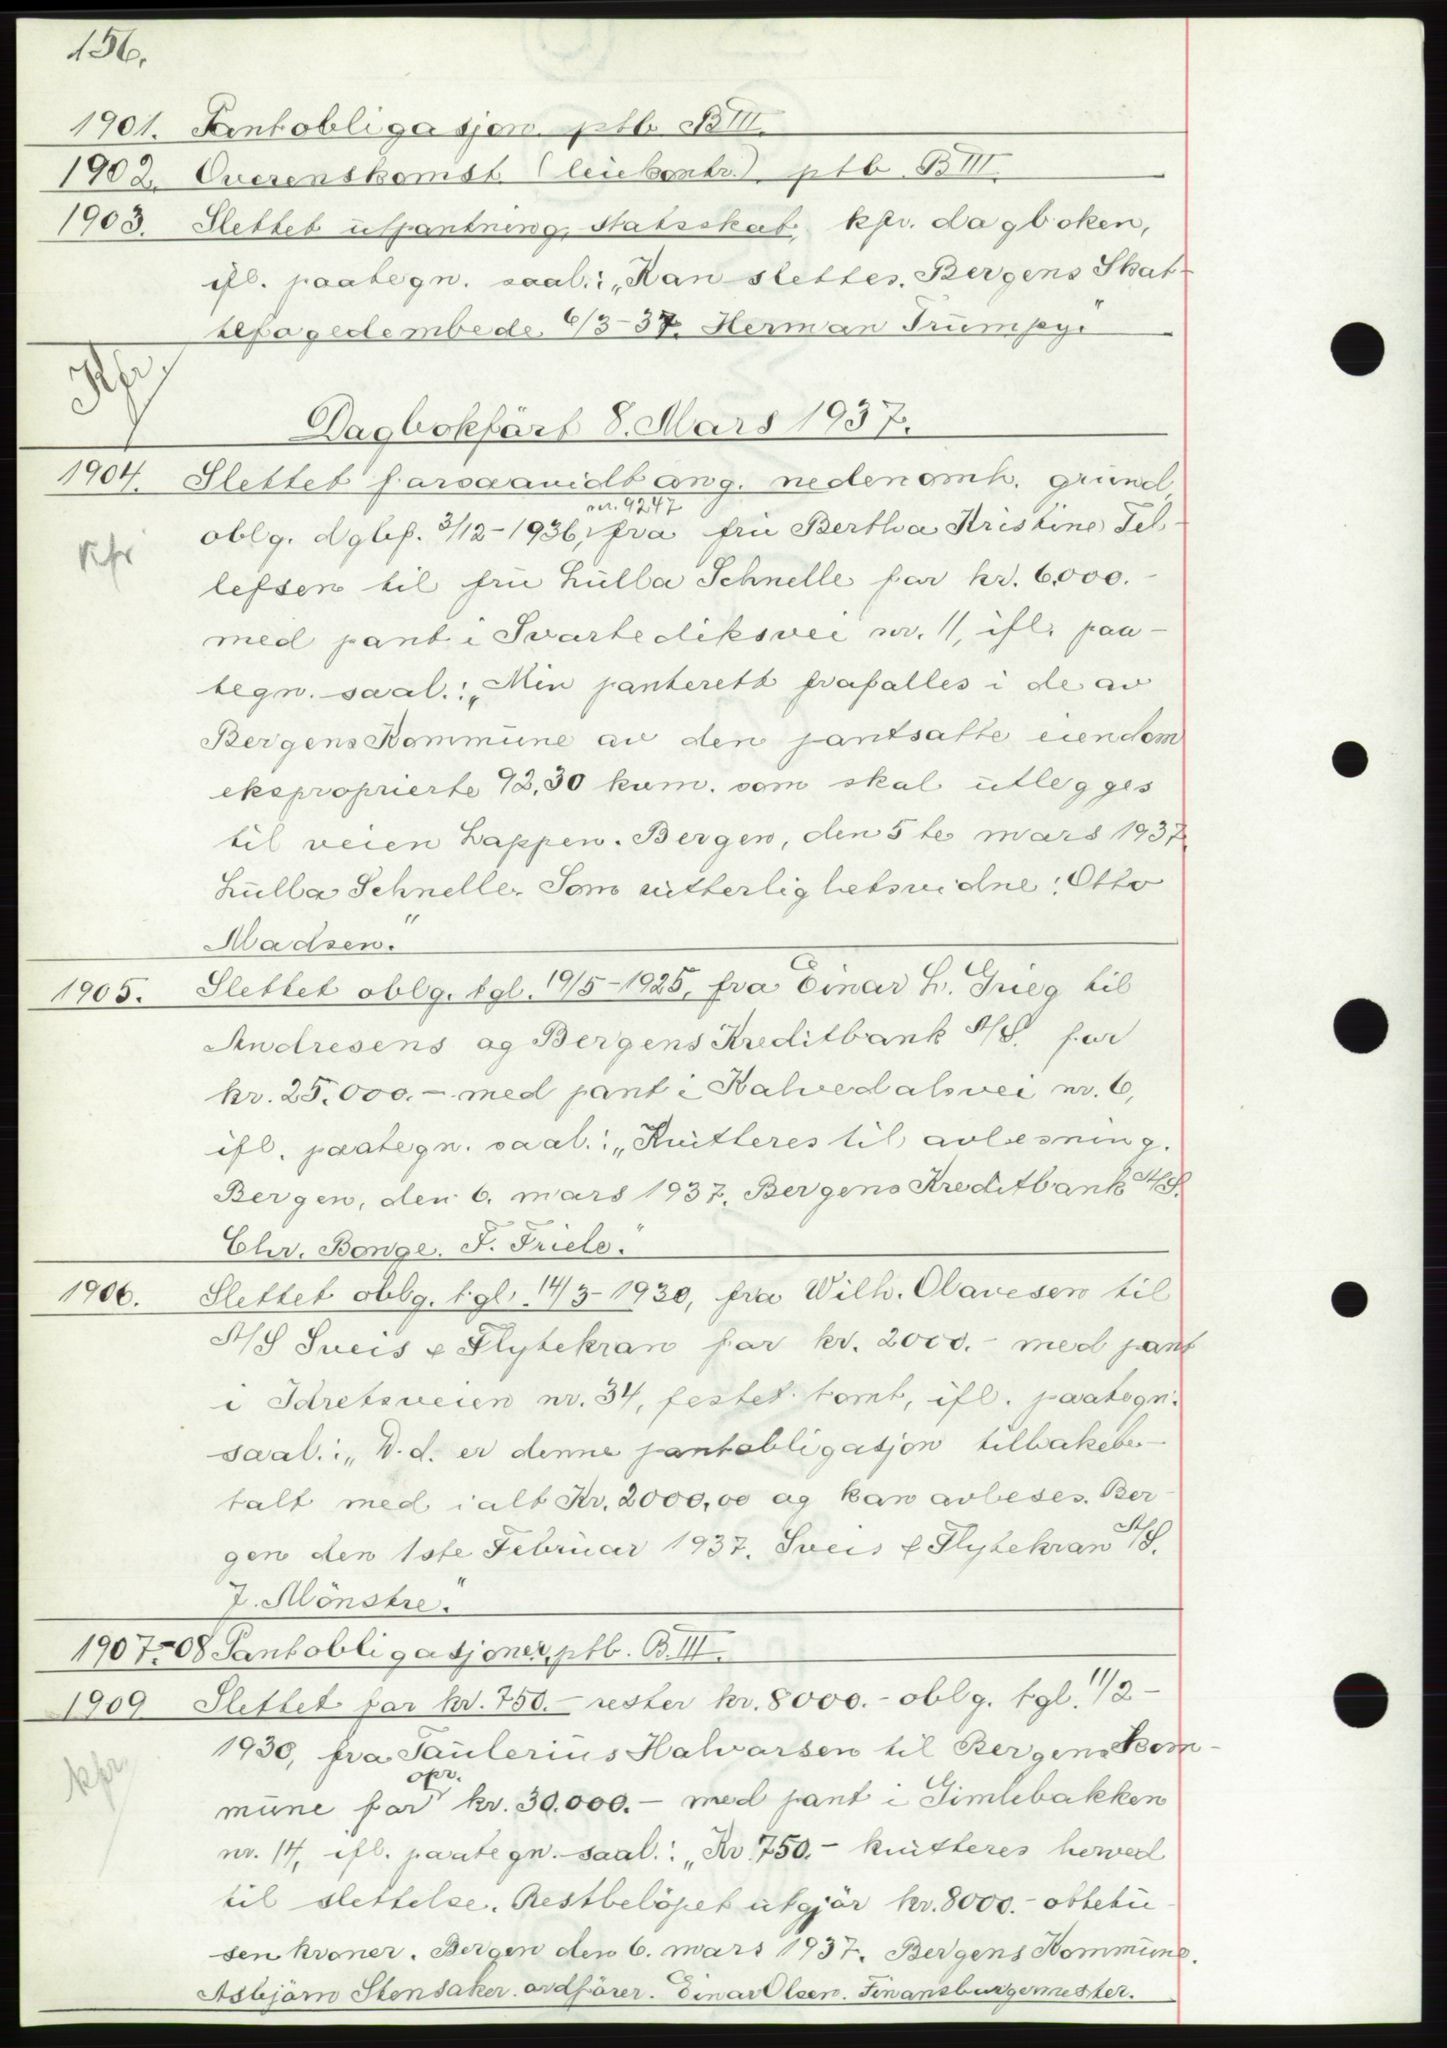 156.
1901. Pantobligasjon ptb. B III.
1902. Overenskomst (leiekontr.) ptb. B III.
1903. Slettet utpantning, statsskat, kfr. dagboken,
ifl. paategn. saal.: „Kan slettes. Bergens Skat-
tefogedembede 6/3-37. Herman Trumpy."
Kfr.
Dagbokført 8. Mars 1937.
1904. Slettet forsaavidt ang. nedenomh. grund
nr. 9247
oblg. dgbf. 3/12-1936, fra fru Bertha Kristine Tel-
Kfr
lefsen til fru Lulla Schnelle for kr. 6.000.-
med pant i Svartediksvei nr. 11, ifl. paa-
tegn. saal.: „Min panterett frafalles i de av
Bergens Kommune av den pantsatte eiendom
eksproprierte 92,30 kvm. som skal utlegges
til veien Lappen. Bergen, den 5te mars 1937.
Lulla Schnelle. Som vitterlighetsvidne: Otto
Madsen."
1905. Slettet oblg. tgl. 19/5-1925, fra Einar L. Grieg til
Andresens og Bergens Kreditbank A/S. for
kr. 25.000.- med pant i Kalvedalsvei nr. 6,
ifl. paategn. saal.: „Kvitteres til avlesning.
Bergen, den 6. mars 1937. Bergens Kreditbank A/S.
Chr. Bonge. F. Friele."
1906. Slettet oblg. tgl. 14/3-1930, fra Wilh. Olavesen til
A/S Sveis & Flytekran for kr. 2000.- med pant
i Idretsveien nr. 34, festet tomt, ifl. paategn.
saal.: „D.d. er denne pantobligasjon tilbakebe-
talt med ialt Kr. 2000,00 og kan avleses. Ber-
gen den 1ste Februar 1937. Sveis & Flytekran A/S.
J. Mönstre."
1907-08 Pantobligasjoner, ptb. B. III.
1909 Slettet for kr. 750.- rester kr. 8000.- oblg. tgl. 11/2-
1930, fra Taulerius Halvorsen til Bergens Kom-
kfr
opr.
mune for kr. 30.000.- med pant i Gimlebakken
nr. 14, ifl. paategn. saal.: „Kr. 750.- kvitteres herved
til slettelse. Restbelöpet utgjör kr. 8000.- ottetu-
sen kroner. Bergen den 6. mars 1937. Bergens Kommune.
Asbjörn Stensaker. ordförer. Einar Olsen. Finansburgermester.